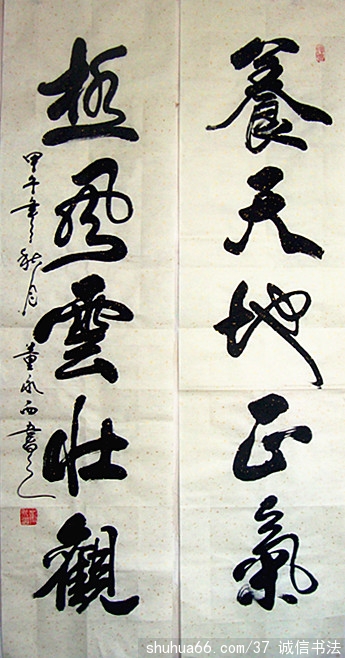 養天地正氣
極風雲壮觀
甲午年秋月 董永西書之
shuhua66.com/37 诚信书法